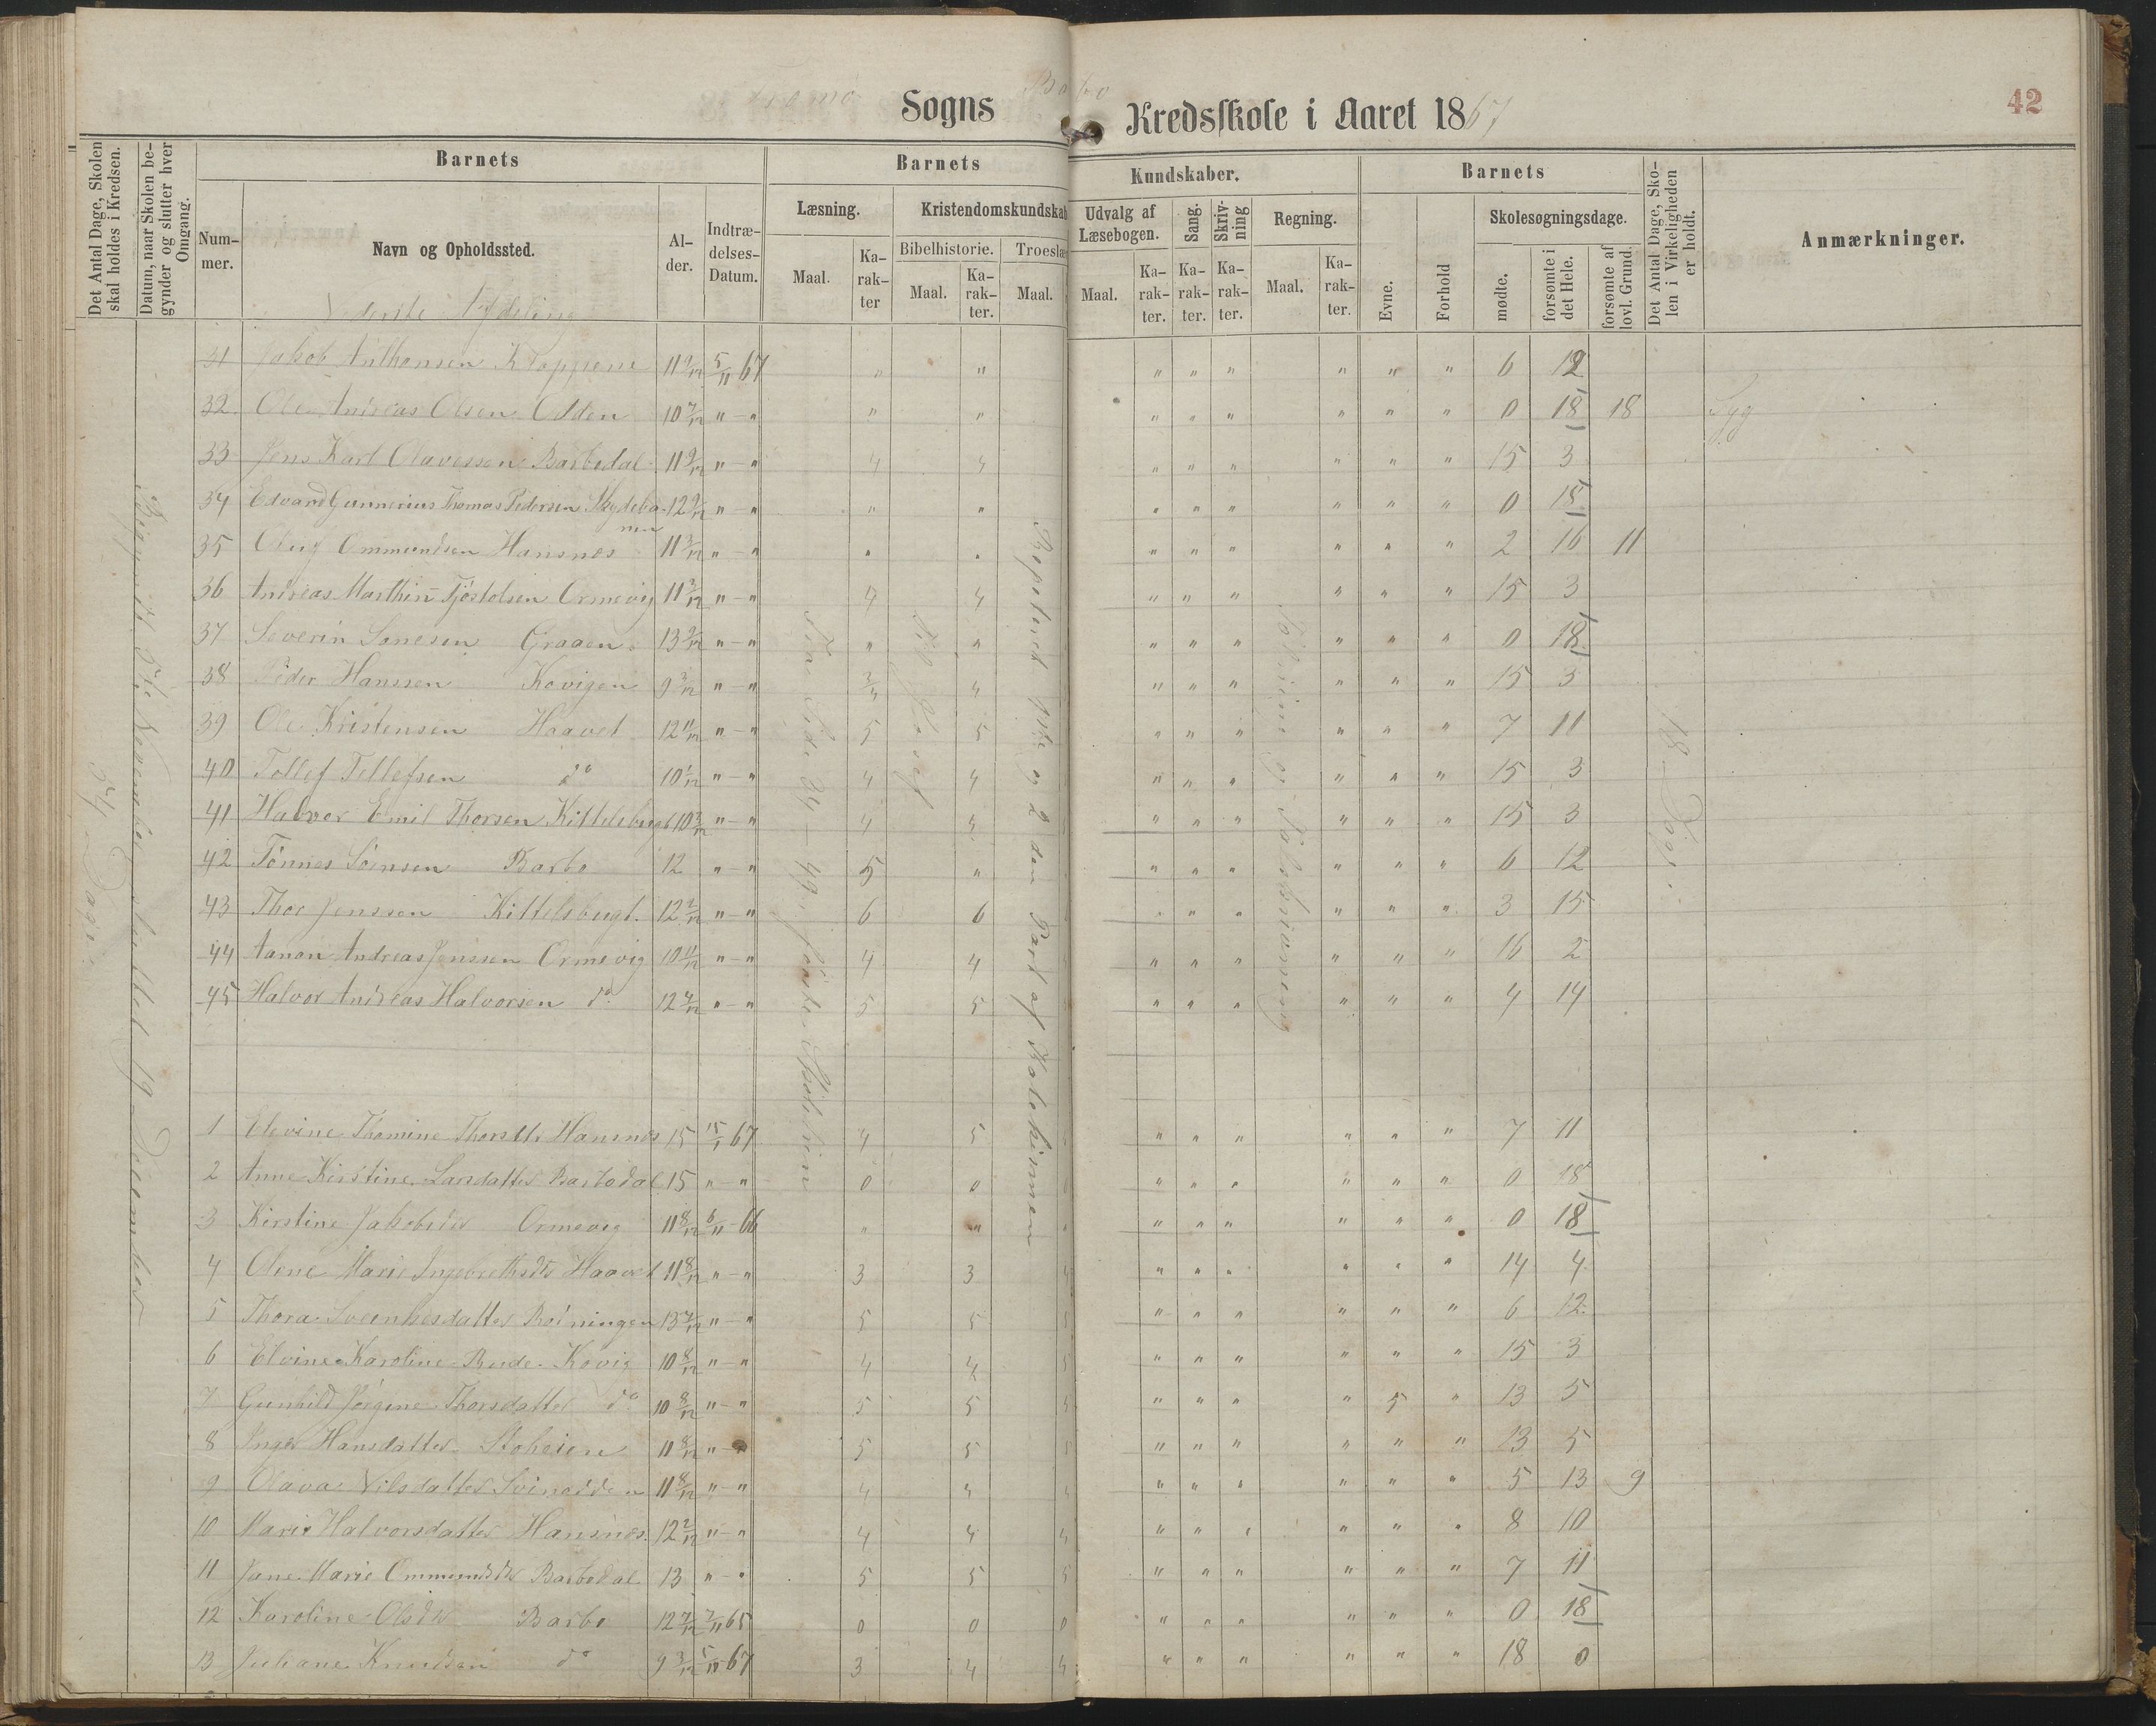 Tromø Sogns Barbo Kredsskole i Aaret 1867
42
Det Antal Dage, Skolen skal holdes i Kredsen.
Datum, naar Skolen begynder og slutter hver Omgang.
Barnets
Barnets
Kundskaber.
Barnets
Det Antal Dage, Skolen i Virkeligheden er holdt.
Anmærkninger.
Nummer.
Navn og Opholdssted.
Alder.
Indtrædelses-Datum.
Læsning.
Kristendomskundskab
Udvalg af Læsebogen.
Sang.
Skrivning
Regning.
Evne.
Forhold
Skolesøgningsdage.
Bibelhistorie.
Troeslære
Maal.
Karakter
Maal.
Karakter.
Maal.
Maal.
Karakter.
Karakter.
Karakter.
Maal.
Karakter.
mødte.
forsømte i det Hele.
forsømte af lovl. Grund.
Nederste Afdeling
31 Jakob Anthonsen Kloppene 11 9/12 5/11 67 " " " " " " " " 6 12
32 Ole Andreas Olsen Odden 10 7/12 " - " " " " " " " " " 0 18 18 Syg
33 Jens Karl Olavessen Barbodal 11 9/12 " - " 4 4 " " " " " " 15 3
34 Edvard Gunnerius Thomas Pedersen Skydebanen 12 9/12 " - " " " " " " " " " 0 18
35 Oluf Ommundsen Hansnes 11 3/12 " - " " " " " " " " " 2 16 11
36 Andreas Marthin Tjöstolsen Ormevig 11 3/12 " - " 4 4 " " " " " " 15 3
37 Severin Sonesen Graaen 13 9/12 " - " " " " " " " " " 0 18
38 Peder Hanssen Kovigen 9 3/12 " - " 3/4 4 " " " " " " 15 3
39 Ole Kristensen Haavet 12 11/12 " - " 5 5 " " " " " " 7 11
40 Tollef Tellefsen do 10 1/12 " - " 4 4 " " " " " " 15 3
41 Halvor Emil Thorsen Kittelsbugt 10 3/12 " - " 4 4 " " " " " " 15 3
42 Tönnes Sörensen Barbo 12 " - " 5 " " " " " " " 6 12
43 Thor Jenssen Kittelsbugt. 12 2/12 " - " 6 6 " " " " " " 3 15
44 Aanon Andreas Jenssen Ormevig 10 11/12 " - " 4 4 " " " " " " 16 2
45 Halvor Andreas Halvorsen do 12 4/12 " - " 5 5 " " " " " " 4 14
1 Elevine Thomine Thorsdtr Hansnes 15 15/1 67 4 5 " " " " " " 7 11
2 Anne Kirstine Larsdatter Barbodal 15 " - " 0 0 " " " " " " 0 18
3 Kirstine Jakobsdtr Ormevig 11 8/12 6/11 - 66 " " " " " " " " 0 18
4 Olene Marie Ingebrethsdtr Haavet 11 8/12 " - " 3 3 4 " " " " " " 14 4
5 Thora Svenningsdatter 13 7/12 " - " 5 5 5 " " " " " " 6 12
6 Elvine Karoline Kovig 10 8/12 " - " 4 4 5 " " " " " " 15 3
7 Gunhild Jörgine Thorsdatter do 10 8/12 " - " 5 5 4 " " " " 5 " 13 5
8 Inger Hansdatter Stoheien 11 8/12 " - " 5 5 5 " " " " " " 13 5
9 Olava Nilsdatter Svinodden 11 8/12 " - " 4 4 4 " " " " " " 5 13 9
10 Marie Halvorsdatter Hansnes 12 2/12 " - " 4 4 4 " " " " " " 8 10
11 Jane Marie Ommundsdtr Barbodal 13 " - " 5 5 5 " " " " " " 7 11
12 Karoline Olsdtr Barbo 12 7/12 7/11 65 0 0 0 " " " " " " 0 18
13 Juliane Knudsen do 9 3/12 5/11 67 3 4 4 " " " " " " 18 0
54 Dage
Begyndt 5te November sluttet 19 December
Repeteret 1ste og 2den Part af Katekismen
18 Dage